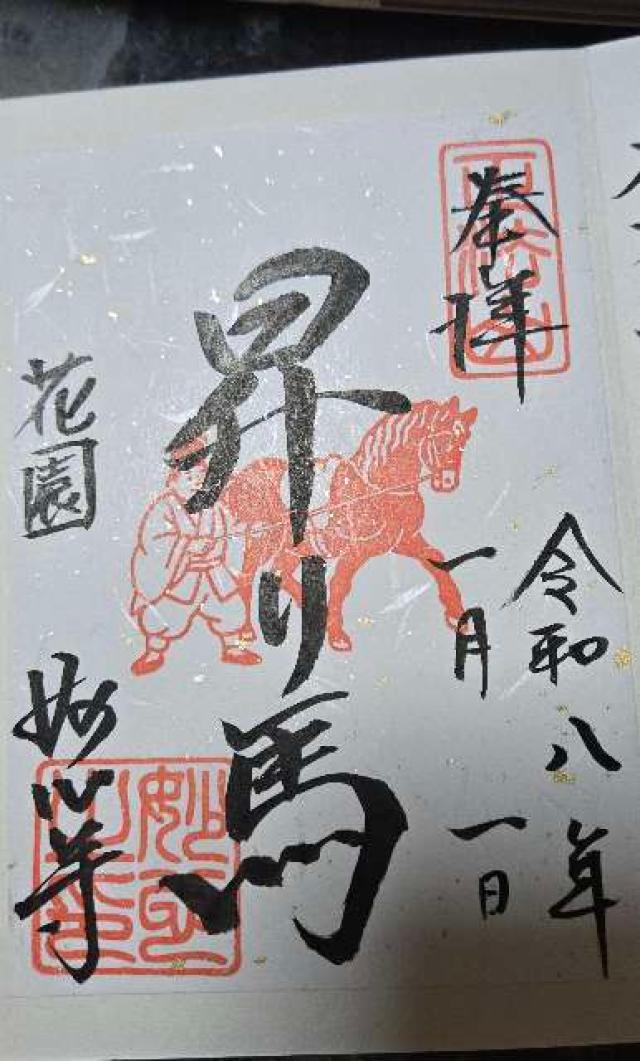 奉拝
令和八年
一月一日
昇り馬
花園
妙心寺